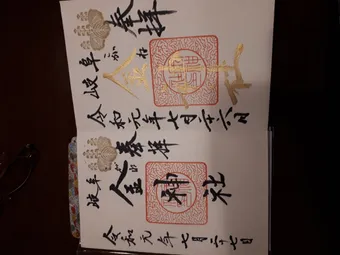 奉拝
岐阜
こがね
金神社
令和元年七月二十六日
奉拝
岐阜
金神社
令和元年七月二十七日